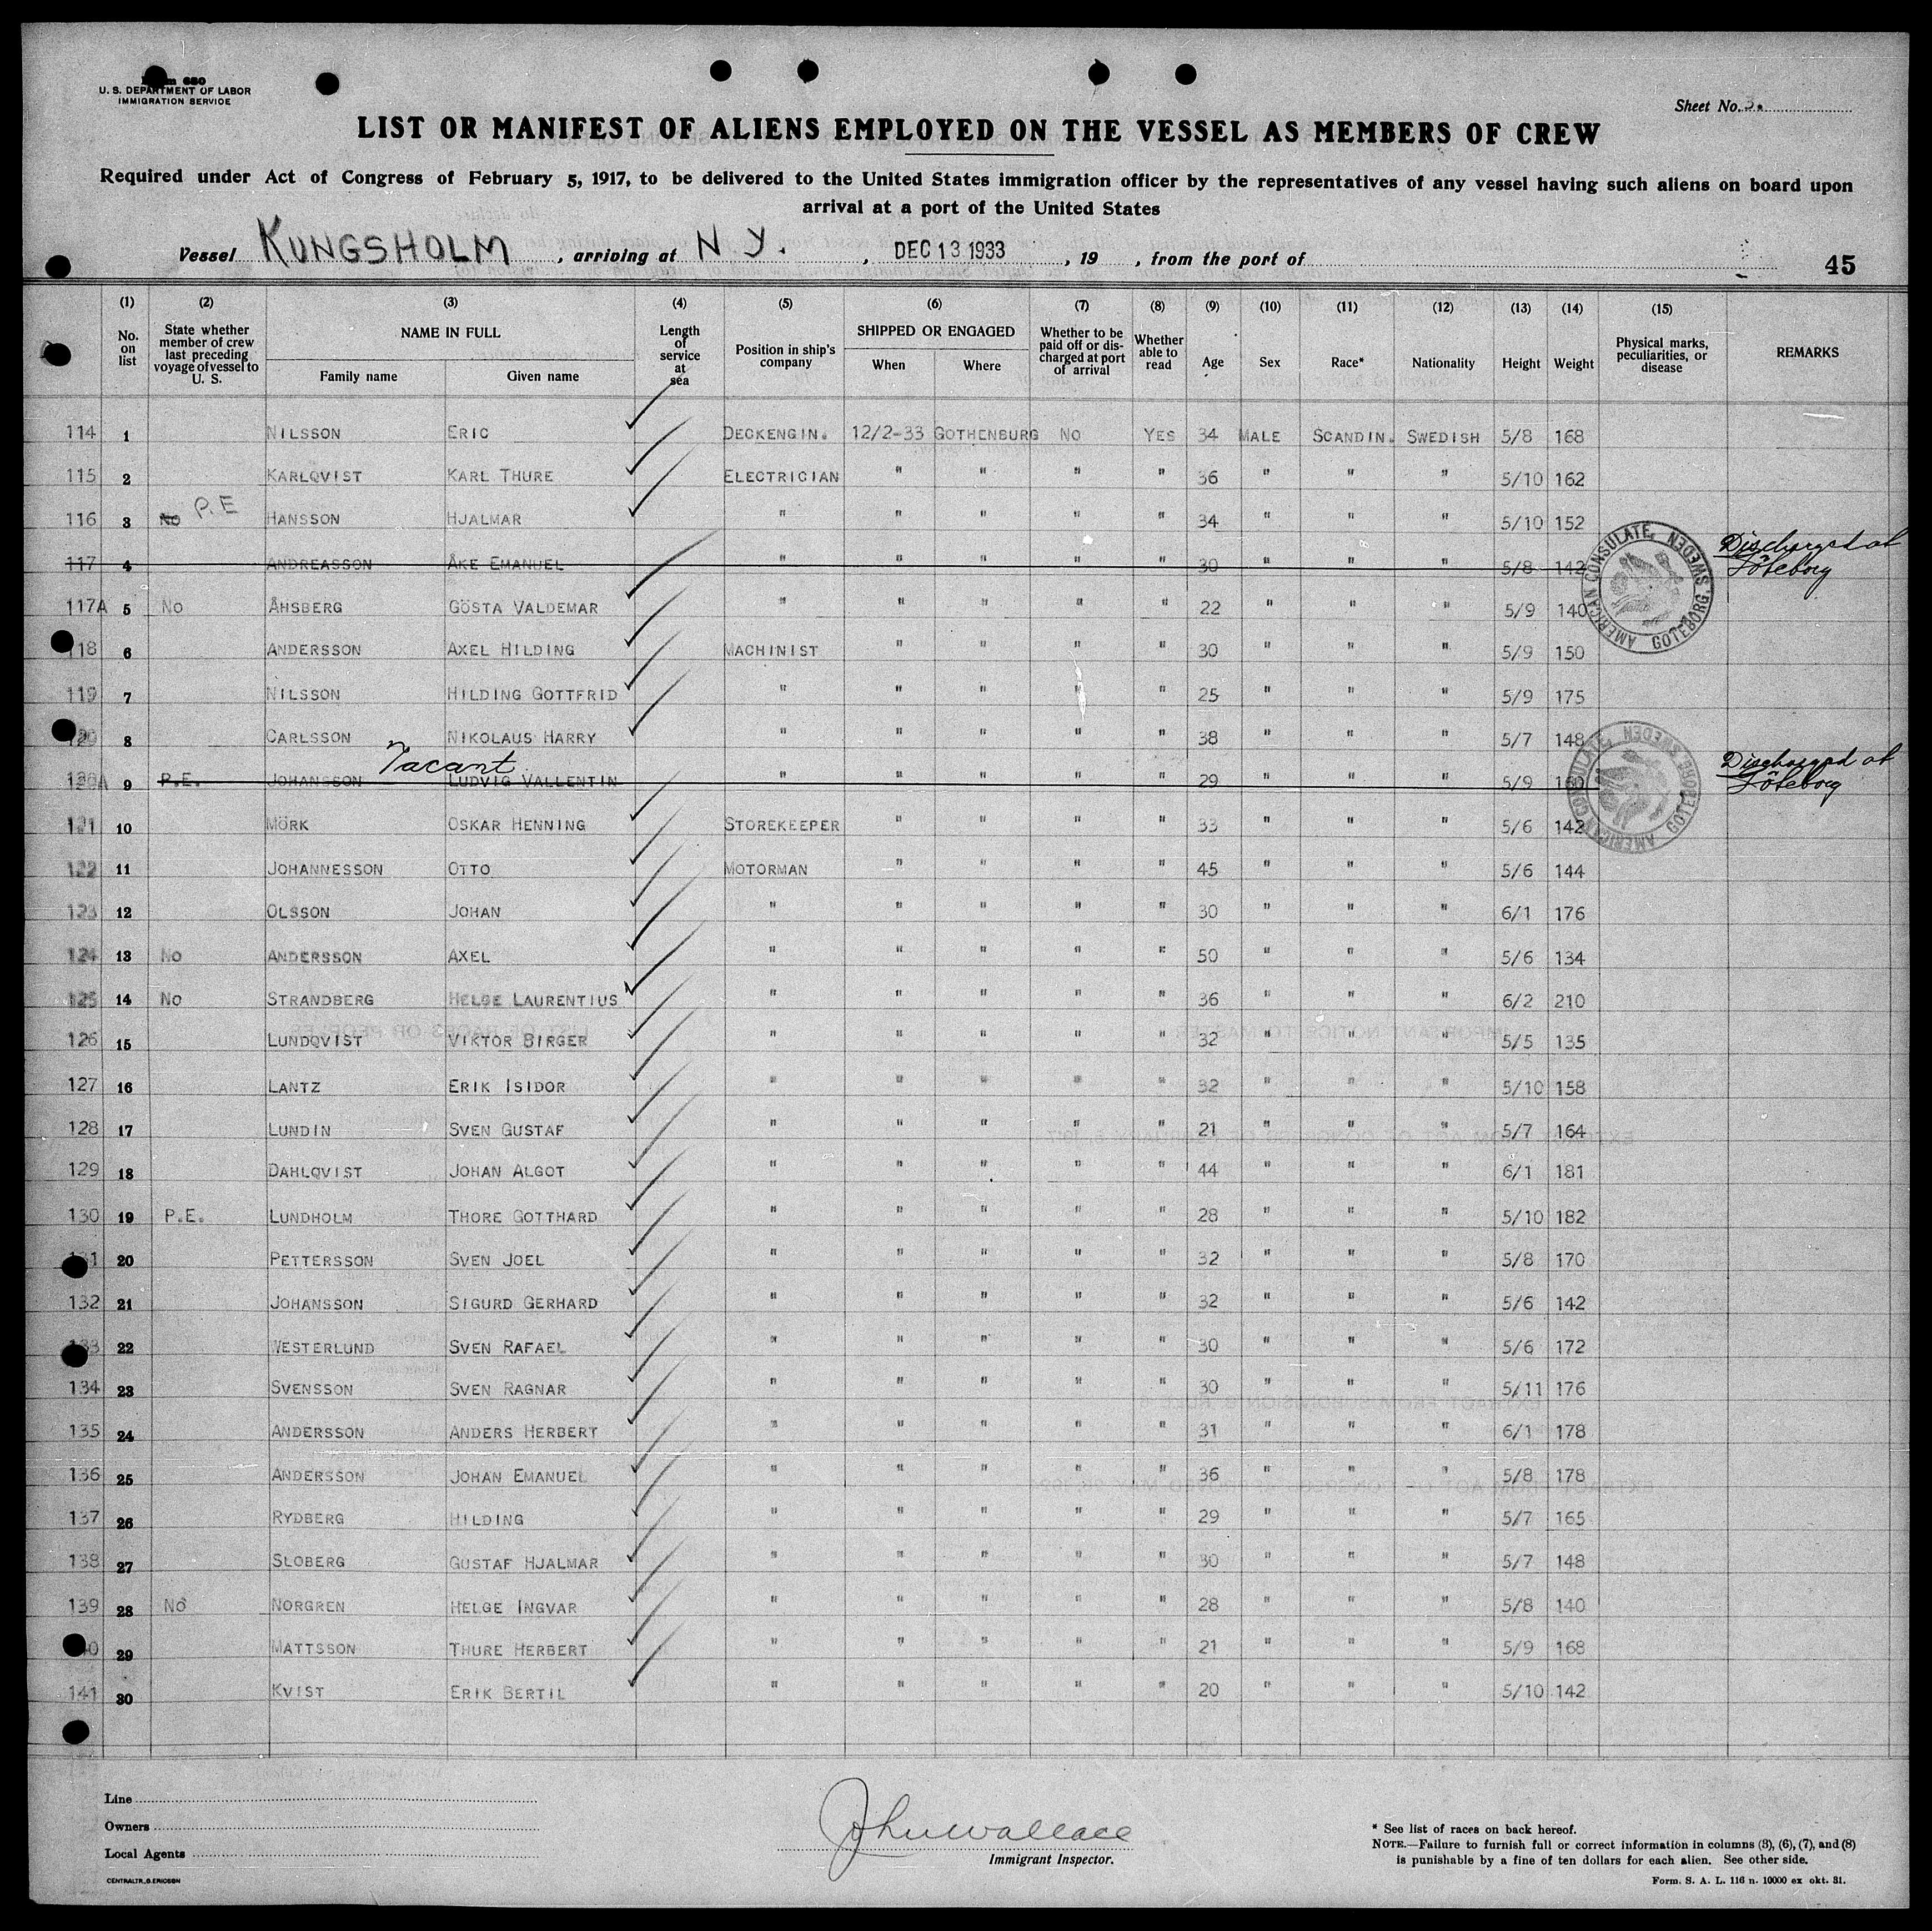 Form 680
U. S. DEPARTMENT OF LABOR
IMMIGRATION SERVICE
Sheet No. 3.
LIST OR MANIFEST OF ALIENS EMPLOYED ON THE VESSEL AS MEMBERS OF CREW
Required under Act of Congress of February 5, 1917, to be delivered to the United States immigration officer by the representatives of any vessel having such aliens on board upon
arrival at a port of the United States
Vessel KUNGSHOLM, arriving at N.Y., DEC 13 1933, 19 , from the port of
45
(1) (2) (3) (4) (5) (6) (7) (8) (9) (10) (11) (12) (13) (14) (15)
No. on list State whether member of crew last preceding voyage of vessel to U. S. NAME IN FULL Family name Given name Length of service at sea Position in ship's company SHIPPED OR ENGAGED When Where Whether to be paid off or discharged at port of arrival Whether able to read Age Sex Race* Nationality Height Weight Physical marks, peculiarities, or disease REMARKS
114 1 NILSSON ERIC DECKENGIN. 12/2-33 GOTHENBURG NO YES 34 MALE SCANDIN. SWEDISH 5/8 168
115 2 KARLQVIST KARL THURE ELECTRICIAN " " " " 36 " " " 5/10 162
116 3 No P.E HANSSON HJALMAR " " " " " 34 " " " 5/10 152
117 4 ANDREASSON ÅKE EMANUEL " " " " " 30 " " " 5/8 142 Discharged at Göteborg
117A 5 No ÅHSBERG GÖSTA VALDEMAR " " " " " 22 " " " 5/9 140
AMERICAN CONSULATE, GOTEBORG, SWEDEN
118 6 ANDERSSON AXEL HILDING MACHINIST " " " " 30 " " " 5/9 150
119 7 NILSSON HILDING GOTTFRID " " " " " 25 " " " 5/9 175
120 8 CARLSSON NIKOLAUS HARRY " " " " " 38 " " " 5/7 148
Vacant
120A 9 P.E. JOHANSSON LUDVIG VALLENTIN " " " " " 29 " " " 5/9 Discharged at Göteborg
AMERICAN CONSULATE, GOTEBORG, SWEDEN
121 10 MÖRK OSKAR HENNING STOREKEEPER " " " " 33 " " " 5/6 142
122 11 JOHANNESSON OTTO MOTORMAN " " " " 45 " " " 5/6 144
123 12 OLSSON JOHAN " " " " " 30 " " " 6/1 176
124 13 No ANDERSSON AXEL " " " " " 50 " " " 5/6 134
125 14 No STRANDBERG HELGE LAURENTIUS " " " " " 36 " " " 6/2 210
126 15 LUNDQVIST VIKTOR BIRGER " " " " " 32 " " " 5/5 135
127 16 LANTZ ERIK ISIDOR " " " " " 32 " " " 5/10 158
128 17 LUNDIN SVEN GUSTAF " " " " " 21 " " " 5/7 164
129 18 DAHLQVIST JOHAN ALGOT " " " " " 44 " " " 6/1 181
130 19 P.E. LUNDHOLM THORE GOTTHARD " " " " " 28 " " " 5/10 182
131 20 PETTERSSON SVEN JOEL " " " " " 32 " " " 5/8 170
132 21 JOHANSSON SIGURD GERHARD " " " " " 32 " " " 5/6 142
133 22 WESTERLUND SVEN RAFAEL " " " " " 30 " " " 5/6 172
134 23 SVENSSON SVEN RAGNAR " " " " " 30 " " " 5/11 176
135 24 ANDERSSON ANDERS HERBERT " " " " " 31 " " " 6/1 178
136 25 ANDERSSON JOHAN EMANUEL " " " " " 36 " " " 5/8 178
137 26 RYDBERG HILDING " " " " " 29 " " " 5/7 165
138 27 SLOBERG GUSTAF HJALMAR " " " " " 30 " " " 5/7 148
139 28 No NORGREN HELGE INGVAR " " " " " 28 " " " 5/8 140
140 29 MATTSSON THURE HERBERT " " " " " 21 " " " 5/9 168
141 30 KVIST ERIK BERTIL " " " " " 20 " " " 5/10 142
Line
Owners
Local Agents
CENTRALTR., G. ERICSSON
John Wallace
Immigrant Inspector.
* See list of races on back hereof.
NOTE.—Failure to furnish full or correct information in columns (3), (6), (7), and (8)
is punishable by a fine of ten dollars for each alien. See other side.
Form. S. A. L. 116 n. 10000 ex okt. 31.